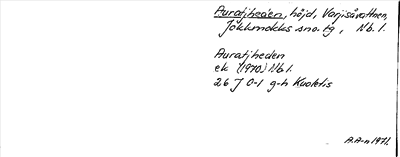 Auratjheden, höjd, Varjisåvattnen,
Jokkmokks sns. tg, Nb. l.
Auratjheden
ek (1970) Nb l.
26 J 0-1 g-h Kuoletis
A.A-n 1971.